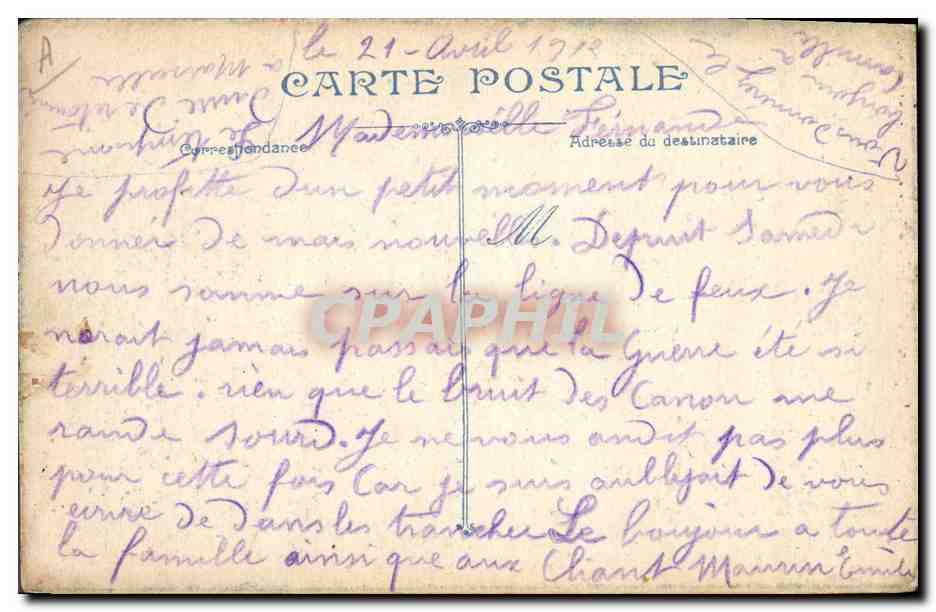 A
le 21 - Avril 1918
CARTE POSTALE
Mademoiselle Fernande
Correspondance
Adresse du destinataire
Je profitte dun petit moment pour vous
donner de mais nouvelle. Depuit Samedi
nous somme sur la ligne de feux. Je
norait jamais passais que la Guerre été si
terrible. rien que le bruit des Canon me
rande sourd. Je ne vous andit pas plus
pour cette fois Car je suis aublijait de vous
ecrire de dans les trancher Le bonjour a toute
la famille ainsi que aux Chant Maurin Emile
M.
a Marseille
CPAPHIL